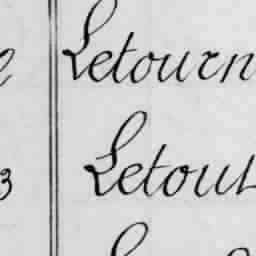 Letourn
3 Letout